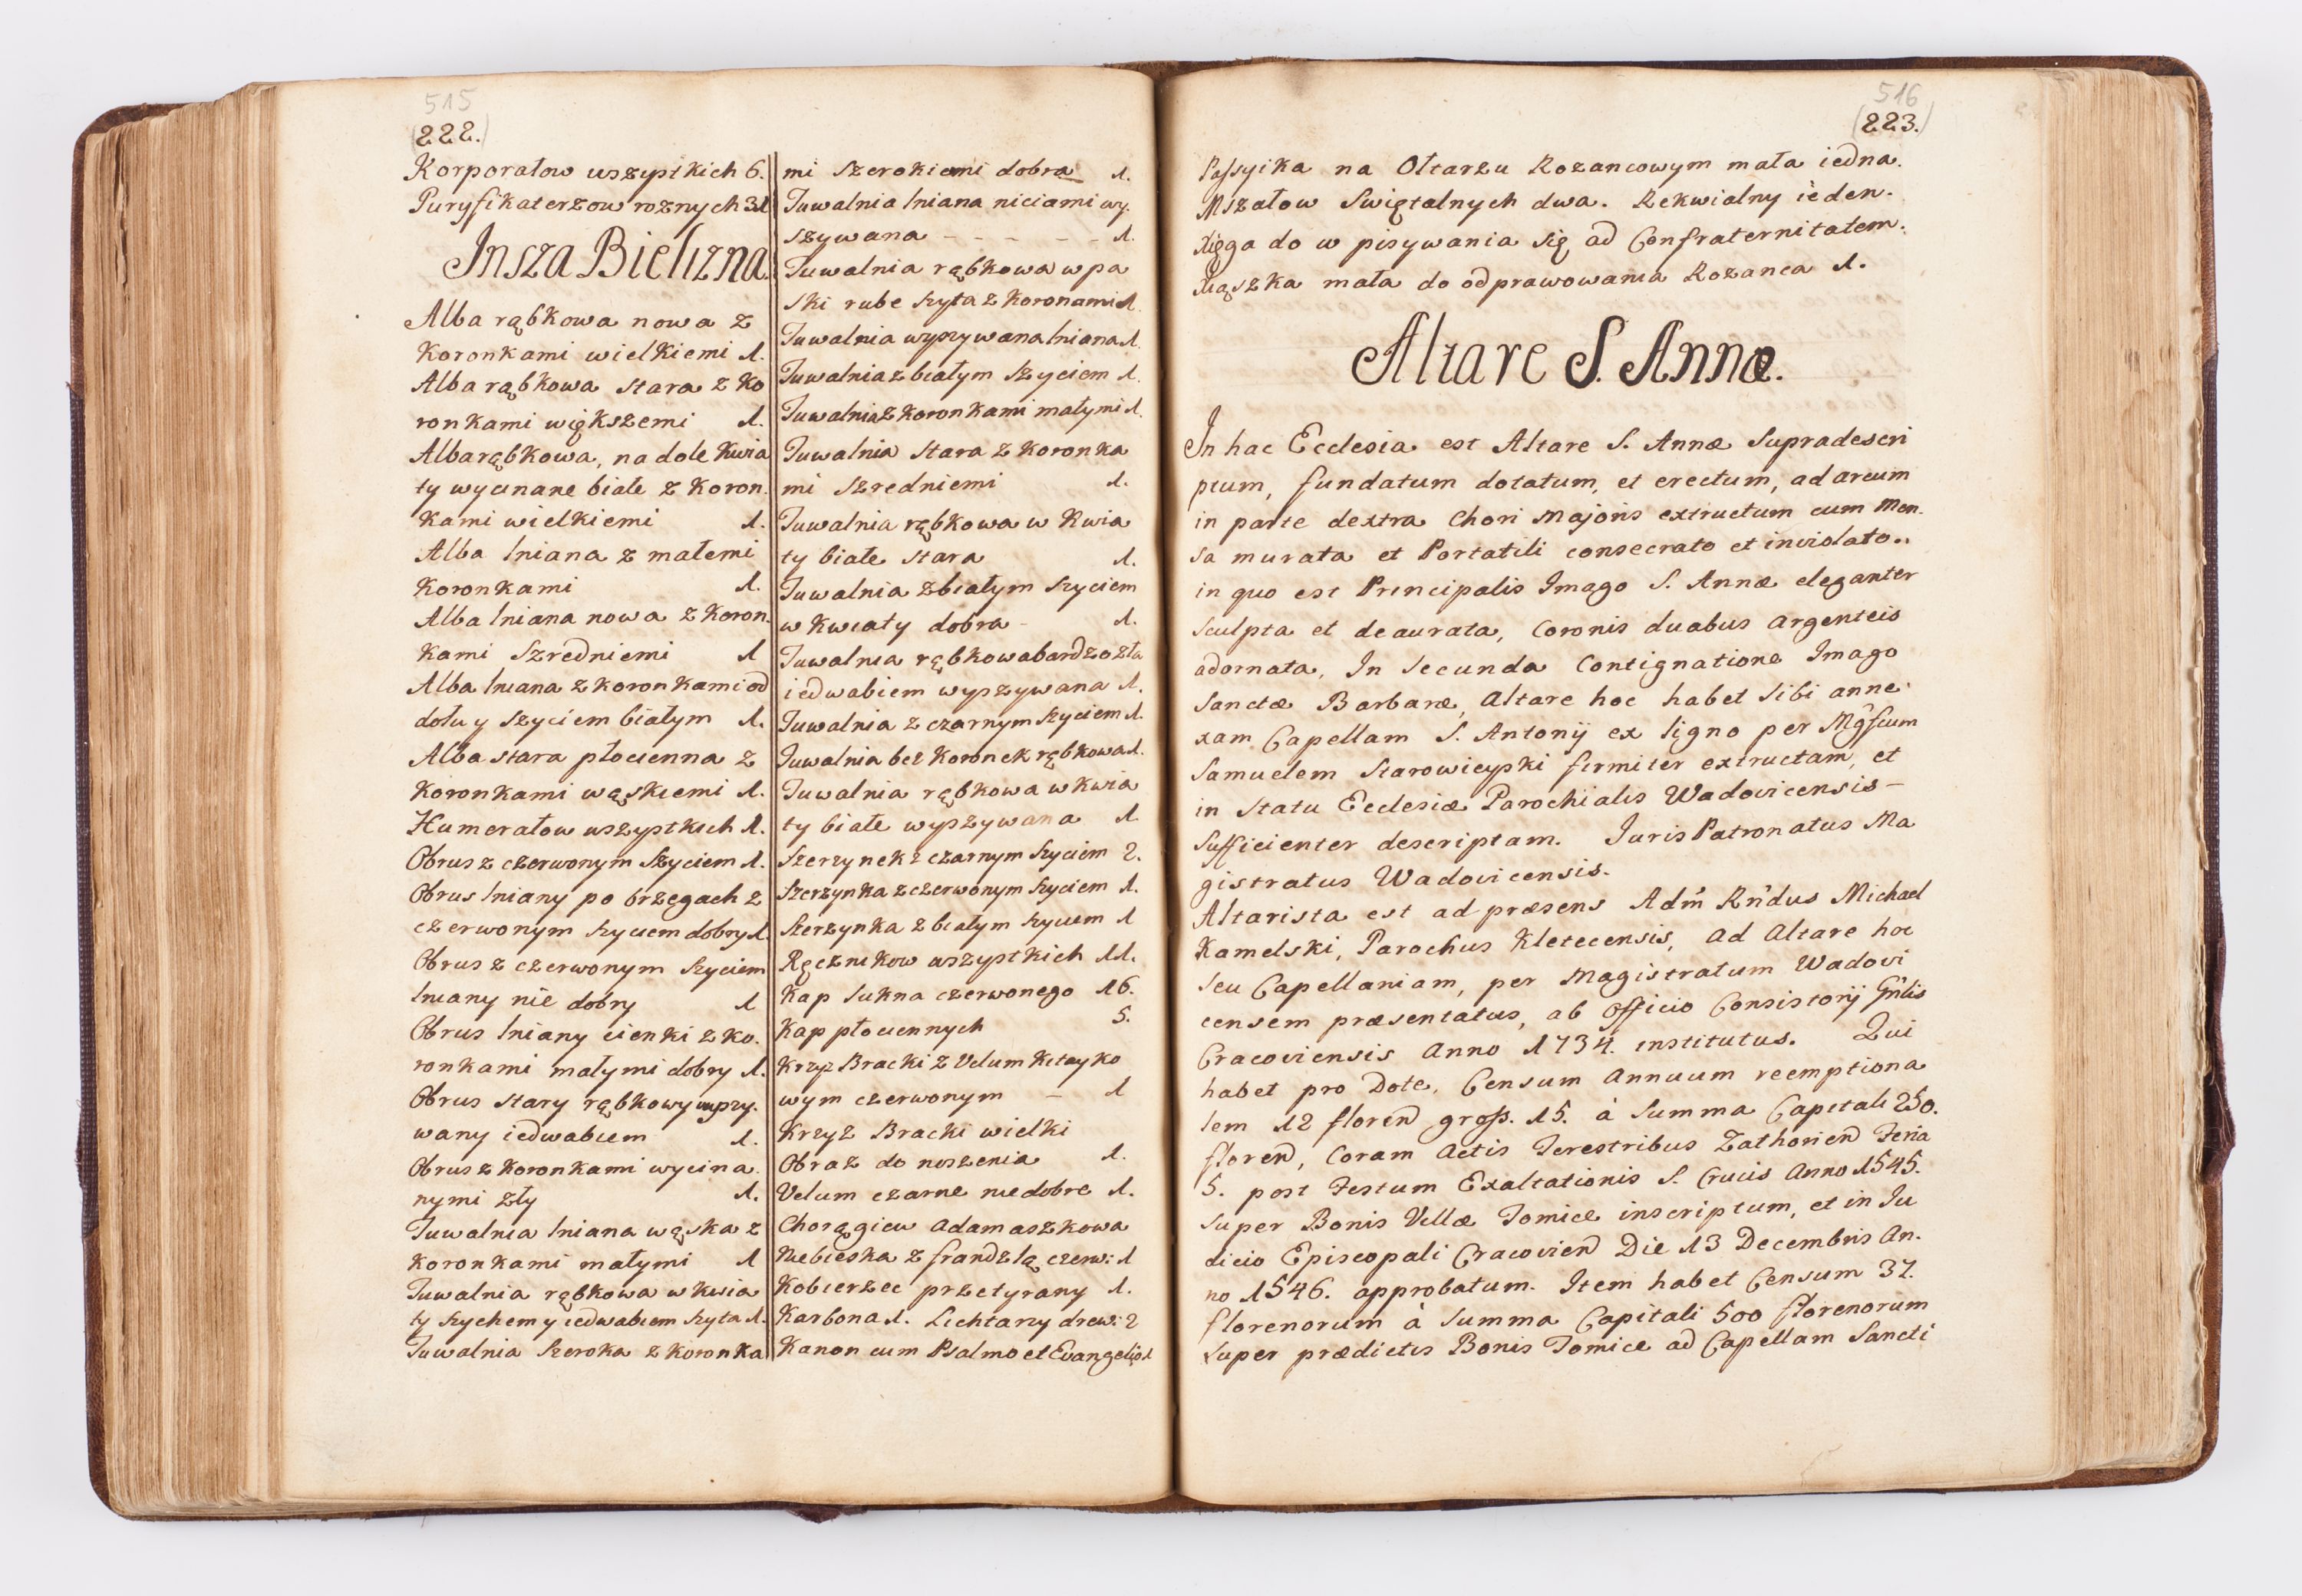 515
(222.)
Korporałow wszystkich 6.
Puryfikaterzow roznych 31
Insza Bielizna
Alba rąbkowa nowa z
Koronkami wielkiemi 1.
Alba rąbkowa stara z Ko
ronkami większemi 1.
Alba rąbkowa, na dole Kwia
ty wycinane białe z Koron.
Kami wielkiemi 1.
Alba lniana z małemi
Koronkami 1.
Alba lniana nowa z Koron.
Kami Szredniemi 1
Alba lniana z koronkami od
dołu y szyciem białym 1.
Alba stara płocienna z
Koronkami wąskiemi 1.
Humerałow wszystkich 1.
Obrus z czerwonym szyciem 1.
Obrus lniany po brzegach z
czerwonym szyciem dobry 1.
Obrus z czerwonym szyciem
lniany nie dobry 1
Obrus lniany cienki z ko.
ronkami małymi dobry 1.
Obrus stary rąbkowy wyszy.
wany iedwabiem 1.
Obrus z Koronkami wycina.
nymi zły 1.
Tuwalnia lniana wąska z
Koronkami małymi 1
Tuwalnia rąbkowa w kwia
ty szychem y iedwabiem szyta 1.
Tuwalnia szeroka z koronka
mi szerokiemi dobra 1.
Tuwalnia lniana niciami wy.
szywana - - - - - 1.
Tuwalnia rąbkowa w pa
ski rube szyta z Koronami 1.
Tuwalnia wyszywana lniana 1.
Tuwalnia z białym szyciem 1.
Tuwalnia z koronkami małymi 1.
Tuwalnia stara z Koronka
mi szredniemi 1.
Tuwalnia rąbkowa w Kwia
ty białe stara 1.
Tuwalnia z białym szyciem
w Kwiaty dobra - 1.
Tuwalnia rąbkowa bardzo zła
iedwabiem wyszywana 1.
Tuwalnia z czarnym szyciem 1.
Tuwalnia bez Koronek rąbkowa 1.
Tuwalnia rąbkowa w kwia
ty białe wyszywana 1
Szerzynek z czarnym szyciem 2.
Szerzynka z czerwonym szyciem 1.
Szerzynka z białym szyciem 1
Ręcznikow wszystkich 11.
Kap sukna czerwonego 16.
Kap płociennych 5.
Krzyz Bracki z Velum Kitayko
wym czerwonym - 1
Krzyz Bracki wielki
Obraz do noszenia 1.
Velum czarne nie dobre 1.
Chorągiew adamaszkowa
Niebieska z frandzlą czerw: 1
Kobierzec przetyrany 1.
Karbona 1. Lichtarzy drew: 2
Kanon cum Psalmo et Evangelio 1
516
(223.)
Passyika na Ołtarzu Rozancowym mała iedna.
Mszałow Swiętalnych dwa. Rekwialny ieden.
Xięga do w pisywania się ad Confraternitatem.
Xiąszka mała do odprawowania Rozanca 1.
Altare S. Annæ.
In hac Ecclesia est Altare S. Annæ Supradescri
ptum, fundatum dotatum, et erectum, ad arcum
in parte dextra Chori Majoris extructum cum Men.
sa murata et Portatili consecrato et inviolato..
in quo est Principalis Imago S. Annæ eleganter
sculpta et deaurata, Coronis duabus argenteis
adornata, In secunda Contignatione Imago
Sanctæ Barbaræ, Altare hoc habet sibi anne
xam Capellam S. Antonij ex ligno per Mgfcum
Samuelem Starowieyski firmiter extructam, et
in Statu Ecclesiæ Parochialis Wadovicensis -
Sufficienter descriptam. Juris Patronatus Ma
gistratus Wadovicensis.
Altarista est ad præsens Adm Rndus Michael
Kamelski, Parochus Kletecensis, ad Altare hoc
seu Capellaniam, per Magistratum Wadovi
censem præsentatus, ab Officio Consistorij Gnlis
Cracoviensis Anno 1734. institutus. Qui
habet pro Dote, Censum Annuum reemptiona
lem 12 floren gross. 15. à Summa Capitali 250.
floren, Coram Actis Terestribus Zathorien Feria
5. post Festum Exaltationis S. Crucis Anno 1545.
super Bonis Villæ Tomice inscriptum, et in Ju
dicio Episcopali Cracovien Die 13 Decembris An.
no 1546. approbatum. Item habet Censum 37.
florenorum à Summa Capitali 500 florenorum
super prædictis Bonis Tomice ad Capellam Sancti